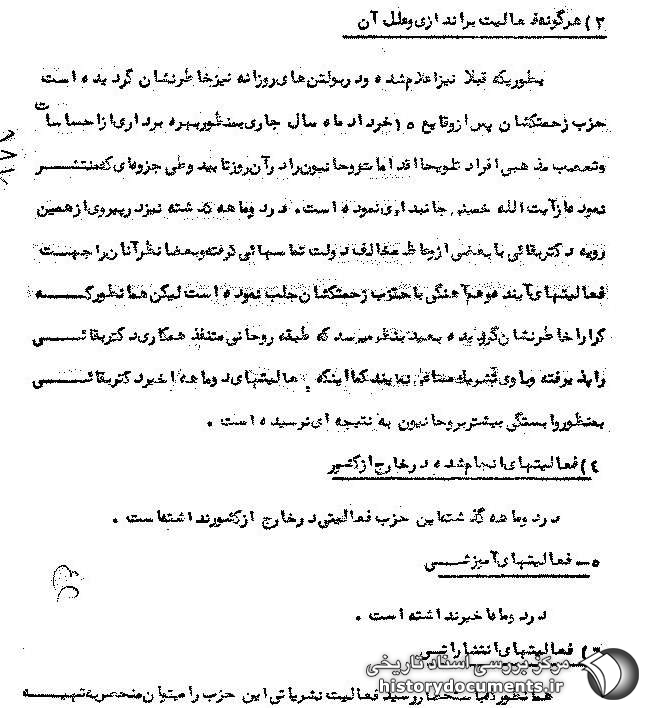 ۳) هرگونه فعالیت براندازی و علل آن
بطوریکه قبلا نیز اعلام شده و در بولتن های روزانه نیز خاطرنشان گردیده است
حزب زحمتکشان پس از وقایع ۱۵ خرداد ماه سال جاری بمنظور بهره برداری از احساسات
و تعصب مذهبی افراد تلویحا اقدامات روحانیون را در آن روز تایید و طی جزوه ای که منتشر
نموده از آیت الله خمینی جانبداری نموده است. در دو ماهه گذشته نیز در پیروی از همین
رویه دکتر بقائی با بعضی از وعاظ مخالف دولت تماسهائی گرفته و بعضا نظر آنان را جهت
فعالیتهای آینده و هم آهنگی با حزب زحمتکشان جلب نموده است لیکن همانطور که
کرارا خاطرنشان گردیده بعید بنظر میرسد که طبقه روحانی متنفذ همکاری دکتر بقائی
را پذیرفته و با وی تشریک مساعی نمایند کما اینکه فعالیتهای دو ماهه اخیر دکتر بقائی
بمنظور وابستگی بیشتر بروحانیون به نتیجه ای نرسیده است.
۴) فعالیتهای انجام شده در خارج از کشور
در دو ماهه گذشته این حزب فعالیتی در خارج از کشور نداشته است.
۵- فعالیتهای آموزشی
در دو ماه اخیر نداشته است.
۶) فعالیتهای انتشاراتی
همانطور که استحضار دارید فعالیت نشریاتی این حزب را میتوان منحصر به تهیه
مرکز بررسی اسناد تاریخی
historydocuments.ir